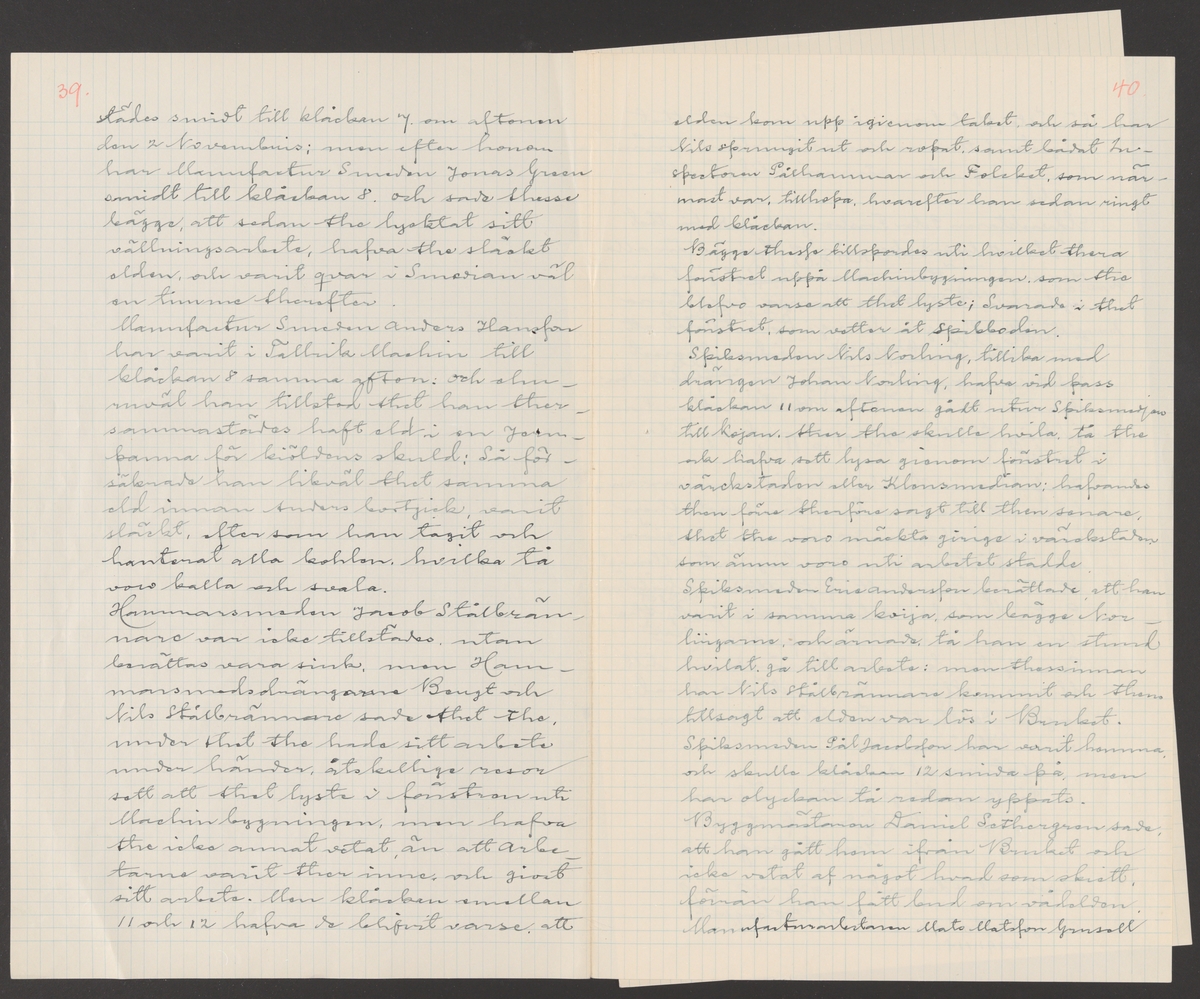 39.
städes smidt till klåckan 7. om aftonen
den 2 Novembris; men efter honom
har Manufactur Smeden Jonas Green
smidt till klåckan 8. och sade thesse
bägge, att sedan the lycktat sitt
vällningsarbete, hafva the släckt
elden, och varit qvar i Smedian väl
en timme therefter.
Manufactur Smeden Anders Hansson
har varit i Tallrik Machin till
klåckan 8 samma afton: och ehu-
ruväl han tillstod thet han ther-
sammastädes haft eld i en Jern-
panna för kiöldens skuld; Så för-
säkrade han likväl thet samma
eld innan Anders bortgick, varit
släckt, efter som han tagit och
hanterat alla kohlen, hvilka tå
voro kalla och svala.
Hammarsmeden Jacob Stålbrän-
nare var icke tillstädes, utan
berättas vara siuk, men Ham-
marsmedsdrängarne Bengt och
Nils Stålbrännare sade thet the,
under thet the hade sitt arbete
under händer, åtskillige resor
sett att thet lyste i fönstren uti
Machinbygningen, men hafva
the icke annat vetat, än att Arbe-
tarne varit ther inne, och giort
sitt arbete. Men klåcken emellan
11 och 12 hafva de blifvit varse, att
40
elden kom upp igienom taket, och så har
Nils sprungit ut och ropat, samt kådat In-
spectoren Pålhammar och Folcket, som när-
mast var, tillhopa, hvarefter han sedan ringt
med klåckan.
Bägge thesse tillspordes uti hvilket thera
fönstret uppå Machinbygningen, som the
blefvo varse att thet lyste; Svarade i thet
fönstret, som vetter åt Spikboden.
Spiksmeden Nils Norling, tillika med
drängen Johan Norling, hafva vid pass
klåckan 11 om aftonen gådt utur Spiksmedjan
till Kojan, ther the skulle hvila, tå the
ock hafva sett lysa gienom fönstret i
värckstaden eller Klensmedian; hafvandes
then förre therföre sagt till then senare,
thet the voro mäckta girige i värckstaden
som ännu voro uti arbetet stadde.
Spiksmeden Eric Andersson berättade, att han
varit i samma koija, som bägge Nor-
lingarne, och ärnade, tå han en stund
hvilat, gå till arbete: men thessinnan
har Nils Stålbrännare kommit och them
tillsagt att elden var lös i Bruket.
Spiksmeden Pål Jacobsson har varit hemma,
och skulle klåcken 12 smida på, men
har olyckan tå redan yppats.
Byggmästaren Daniel Sethergren sade,
att han gått hem ifrån Bruket och
icke vetat af något hvad som skett,
förrän han fått bud om vådelden.
Manufacturarbetaren Mats Matsson Grusell